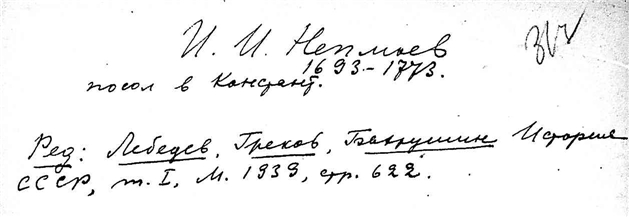 И. И. Неплюев
1693–1773.
посол в Констант.
Ред: Лебедев, Греков, Бахрушин История
СССР, т. I, М. 1939, стр. 622.